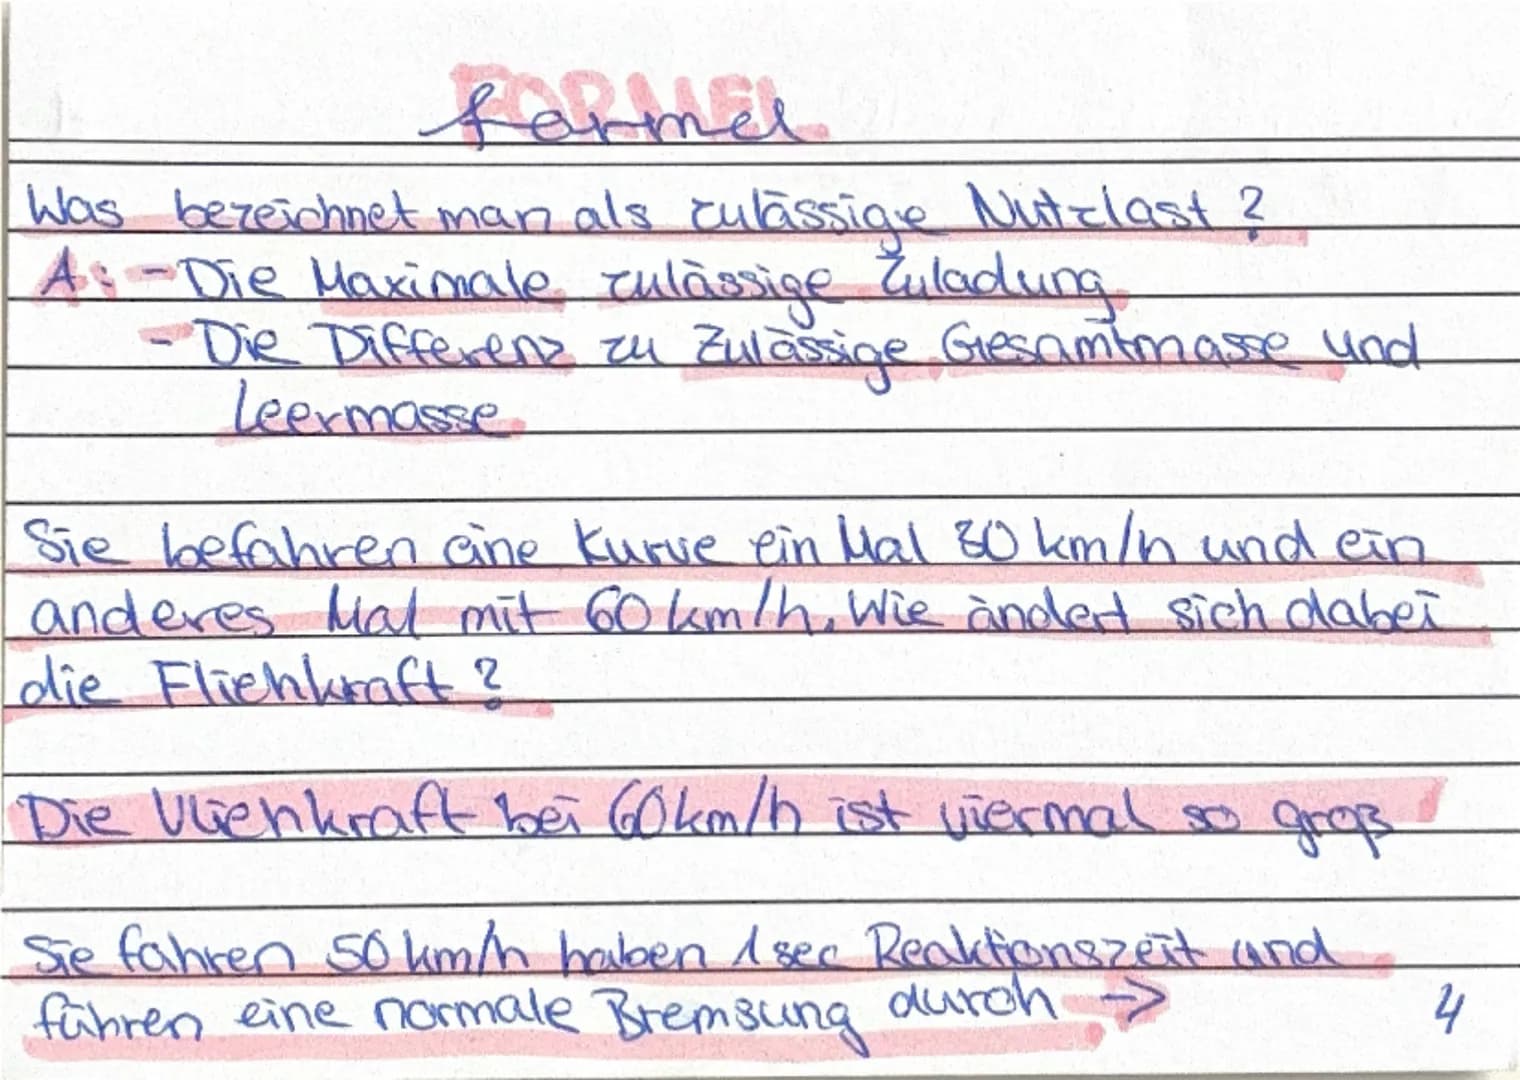 FORMEL
formel
Was bezeichnet man als zulässige Nutzlast?
A: - Die Maximale zulässige Zuladung
- Die Differenz zu Zulässige Gesamtmasse und
Leermasse
Sie befahren eine Kurve ein Mal 30 km/h und ein
anderes Mal mit 60 km/h. Wie ändert sich dabei
die Fliehkraft?
Die Vliehkraft bei 60 km/h ist viermal so groß
Sie fahren 50 km/h haben 1 sec Reaktionszeit und
führen eine normale Bremsung durch →
4